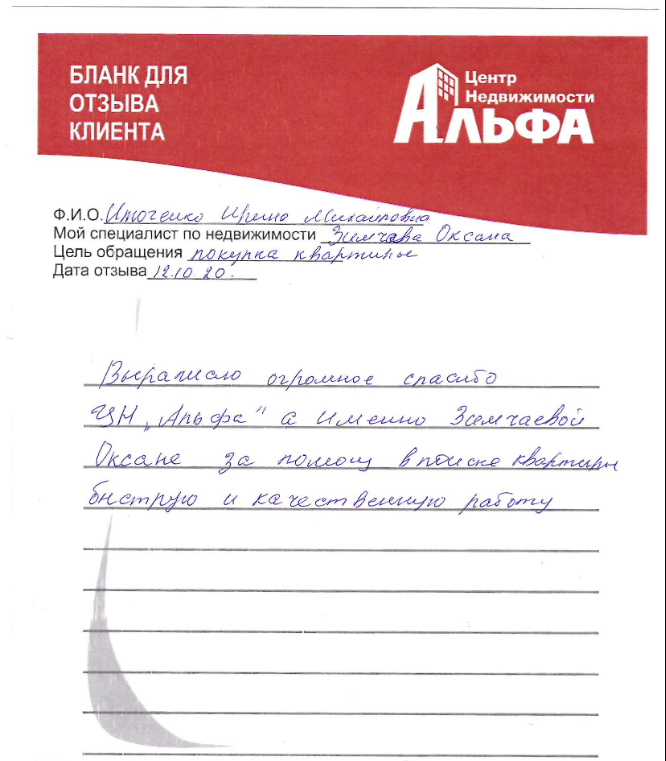 БЛАНК ДЛЯ
ОТЗЫВА
КЛИЕНТА
Центр
Недвижимости
АЛЬФА
Ф.И.О. Ирина Михайловна
Мой специалист по недвижимости Зимчава Оксана
Цель обращения покупка квартиры
Дата отзыва 12.10 20.
Выражаю огромное спасибо
ЦН „Альфа" а именно Зимчаевой
Оксане за помощ в поиске квартиры
быструю и качественную работу